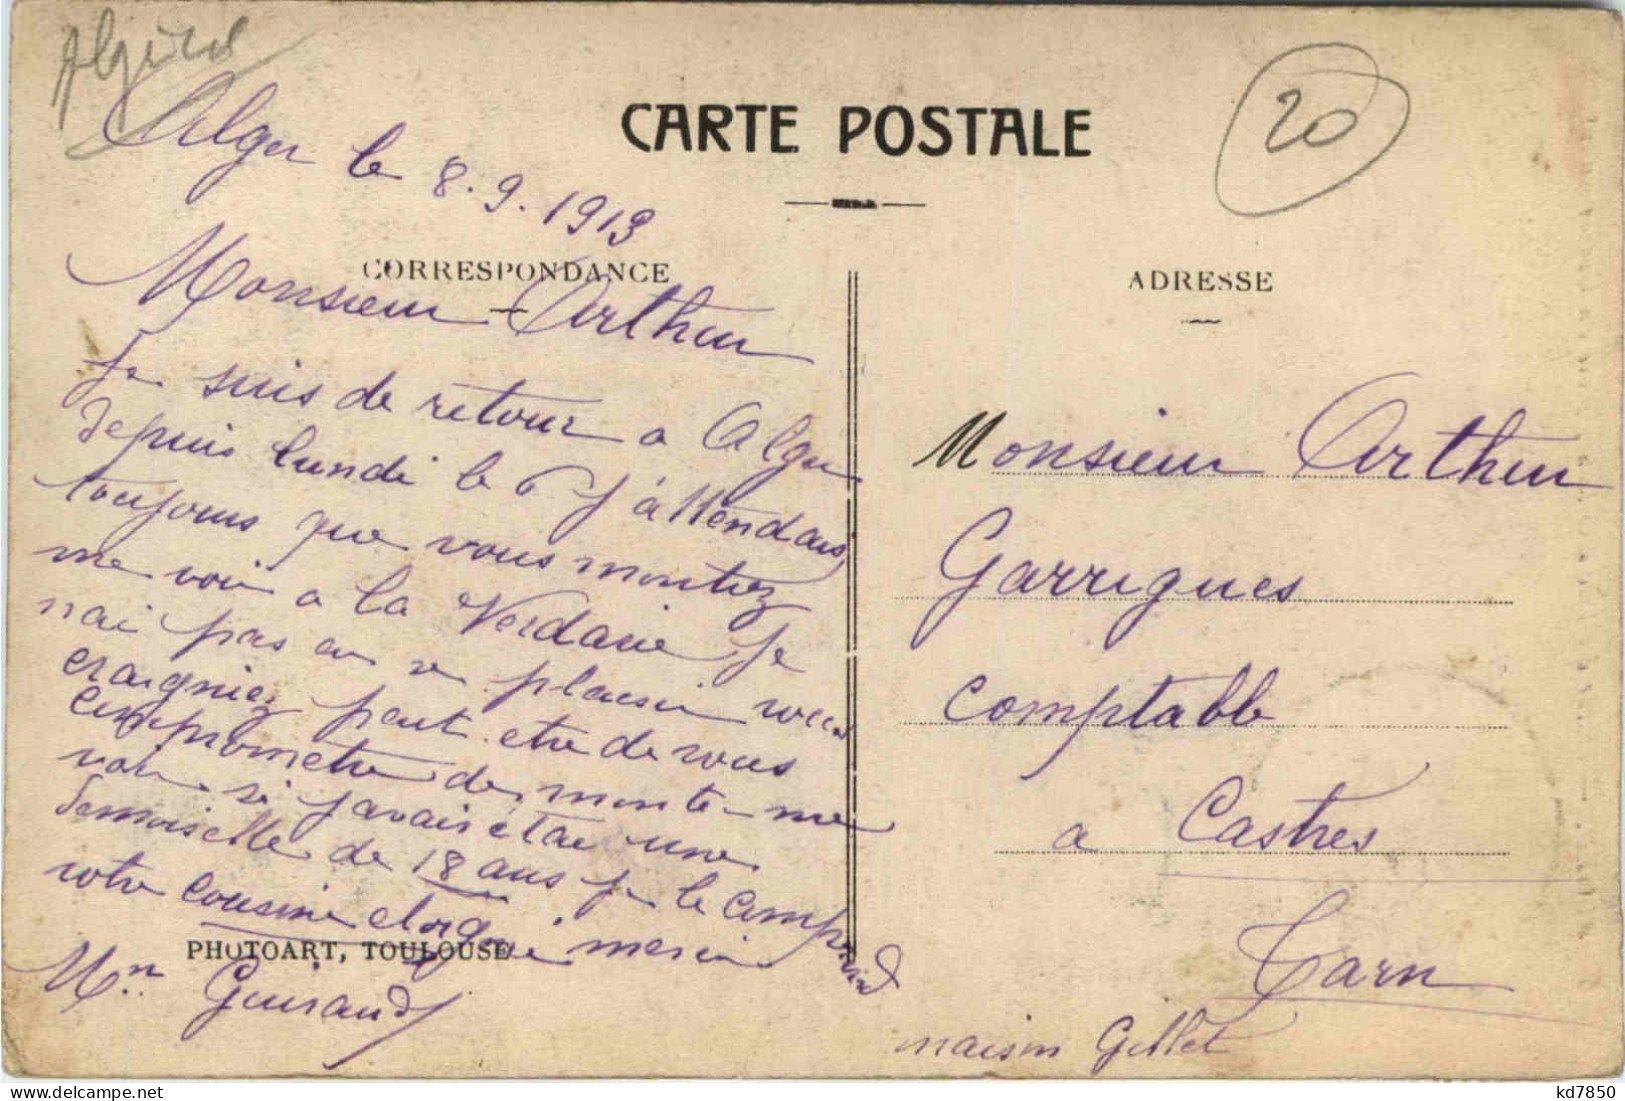 Algérie
Alger le 8.9.1913
CARTE POSTALE
20
CORRESPONDANCE
ADRESSE
Monsieur Arthur
Je suis de retour a Alger
depuis lundi le 6 J'attendais
toujours que vous montiez
me voir a la Verdarie Je
nai pas eu se plaisir vous
craigniez peut etre de vous
comprometre de monte me
voir si javais étae une
demoiselle de 18 ans je le comprend
votre cousine merci
PHOTOART, TOULOUSE
Mon Guiraud
Monsieur Arthur
Garrigues
Comptable
a Castres
Tarn
maison Gillet
kd7850